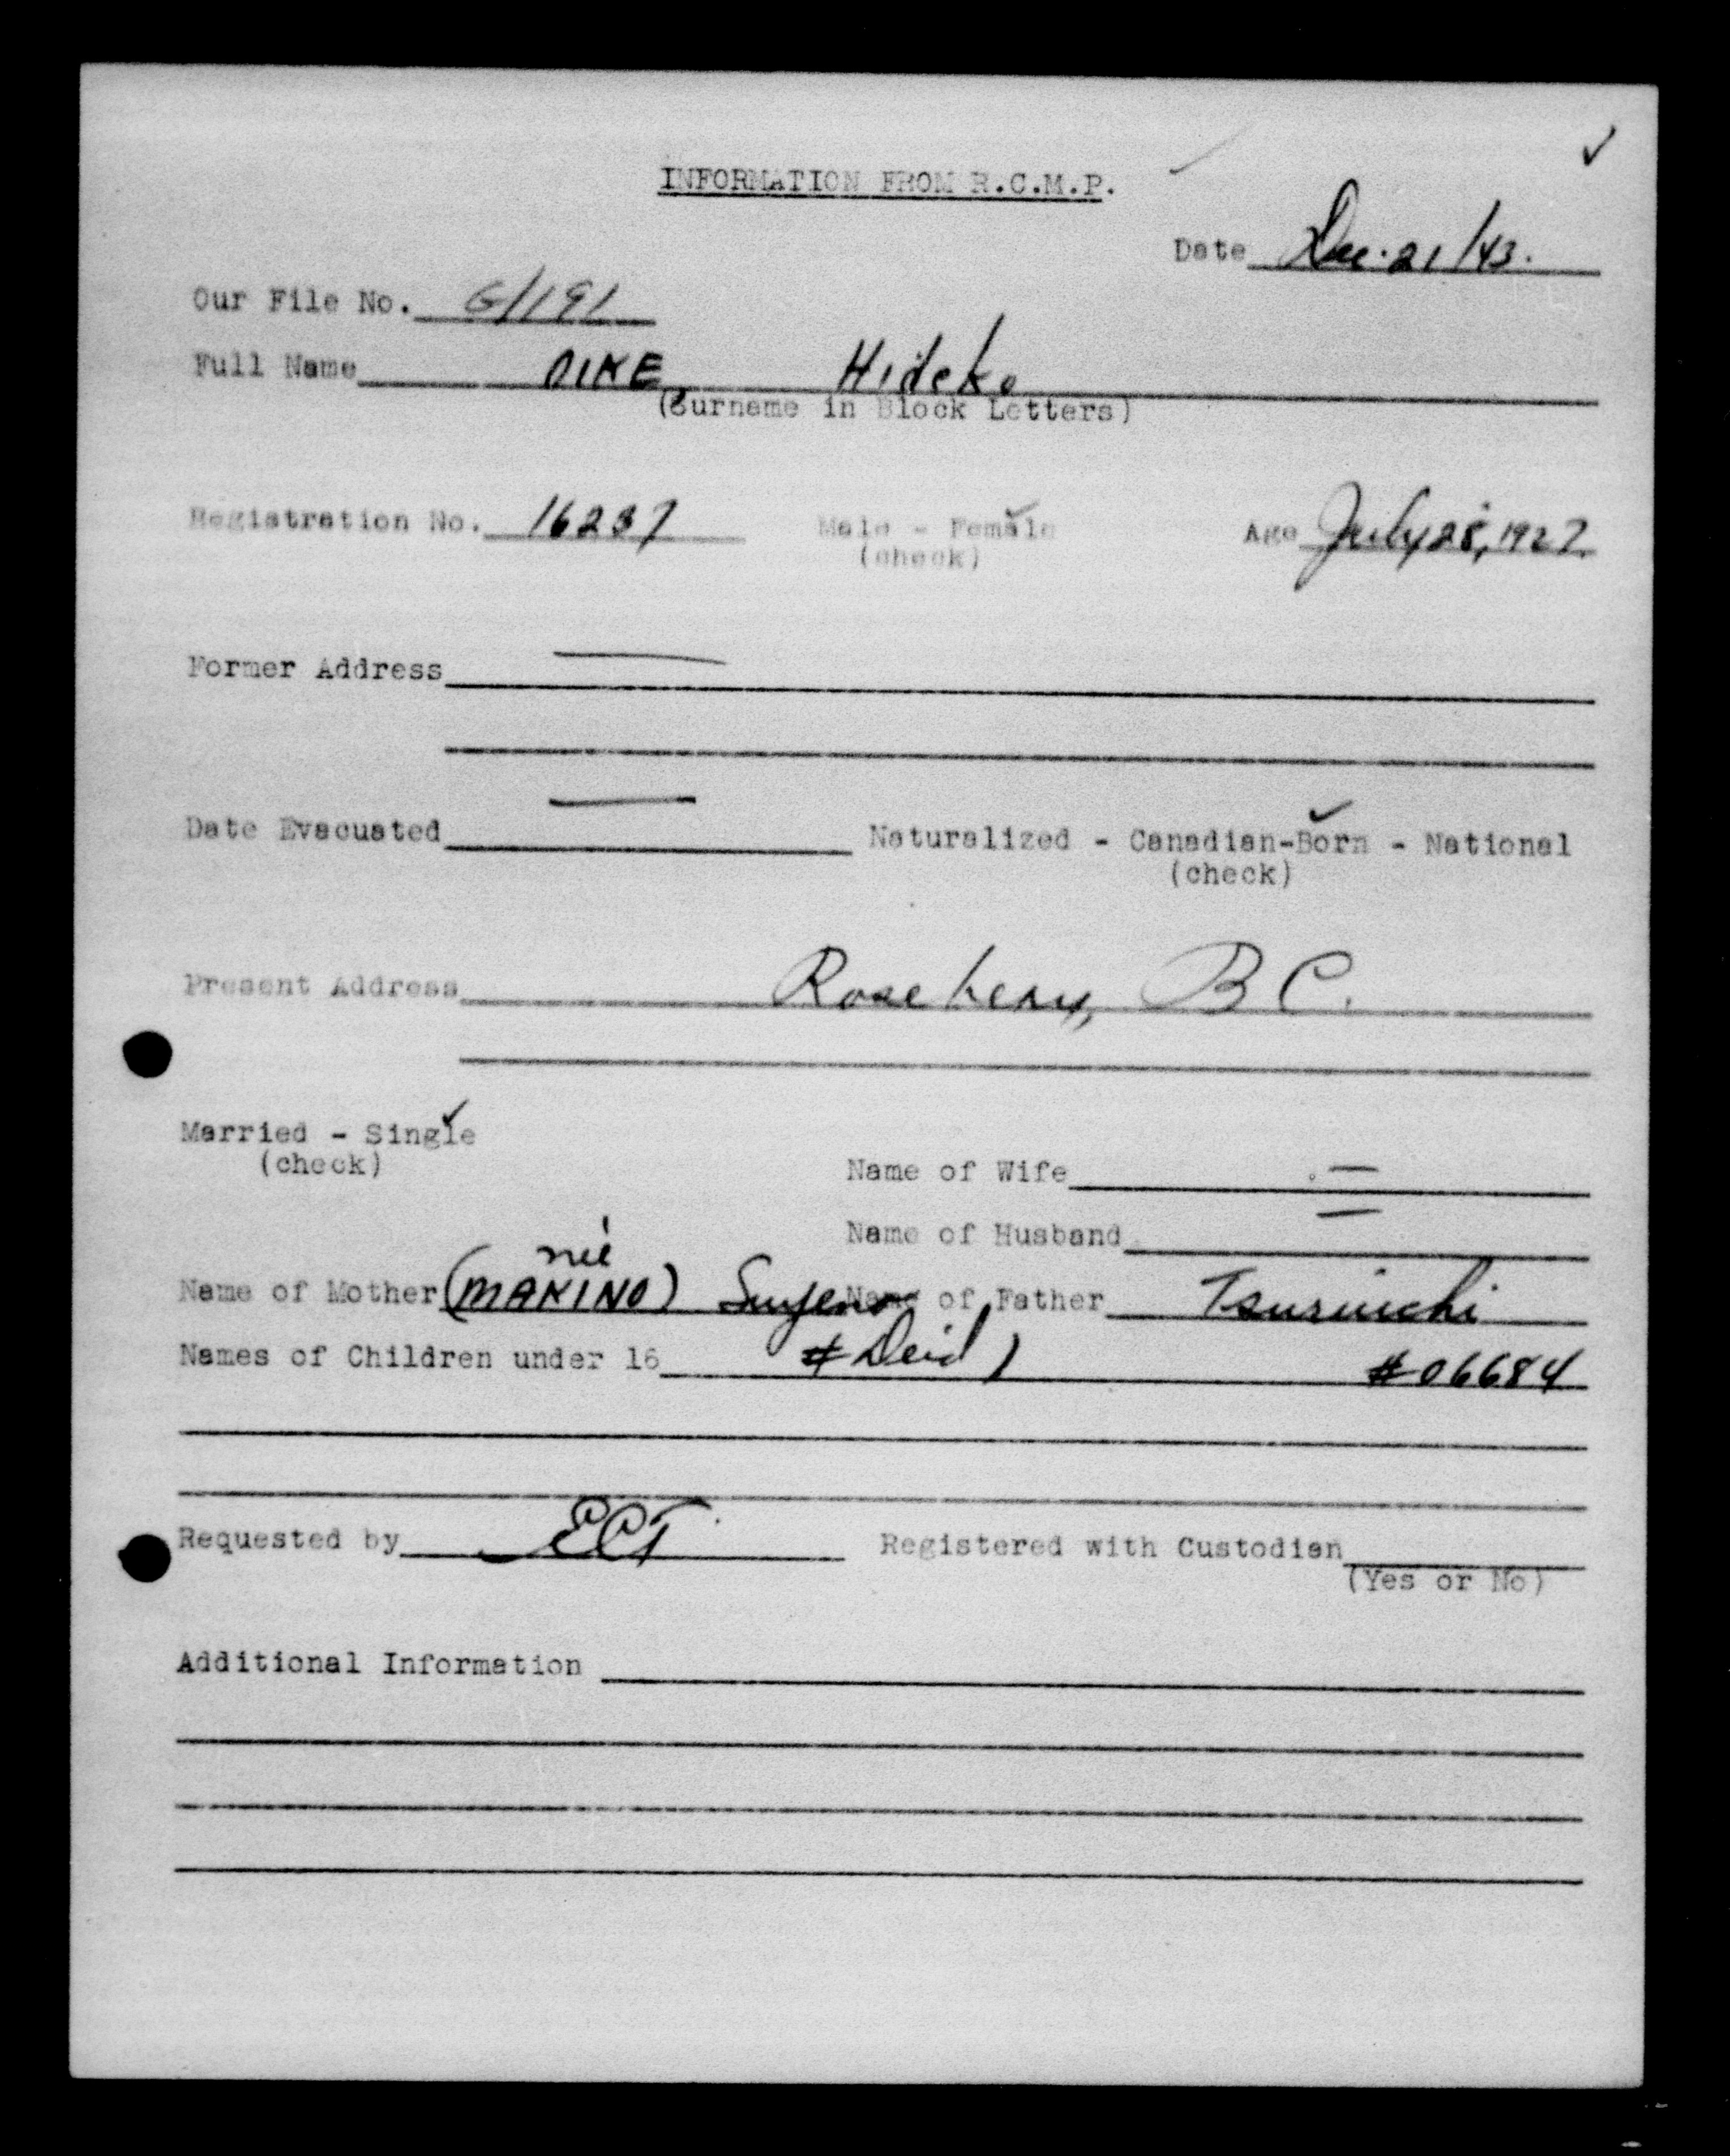 INFORMATION FROM R.C.M.P.
Date Dec. 21/43.
Our File No. G/191
Full Name OIKE, Hideko
(Surname in Block Letters)
Registration No. 16237 Male - Female Age July 28, 1927
(check)
Former Address —
Date Evacuated — Naturalized - Canadian-Born - National
(check)
Present Address Rosebery, B C.
Married - Single
(check)
Name of Wife —
Name of Husband —
née
Name of Mother (MAKINO) Suyeno Name of Father Tsuruichi
Names of Children under 16 # 06684
Requested by ECT Registered with Custodian
(Yes or No)
Additional Information